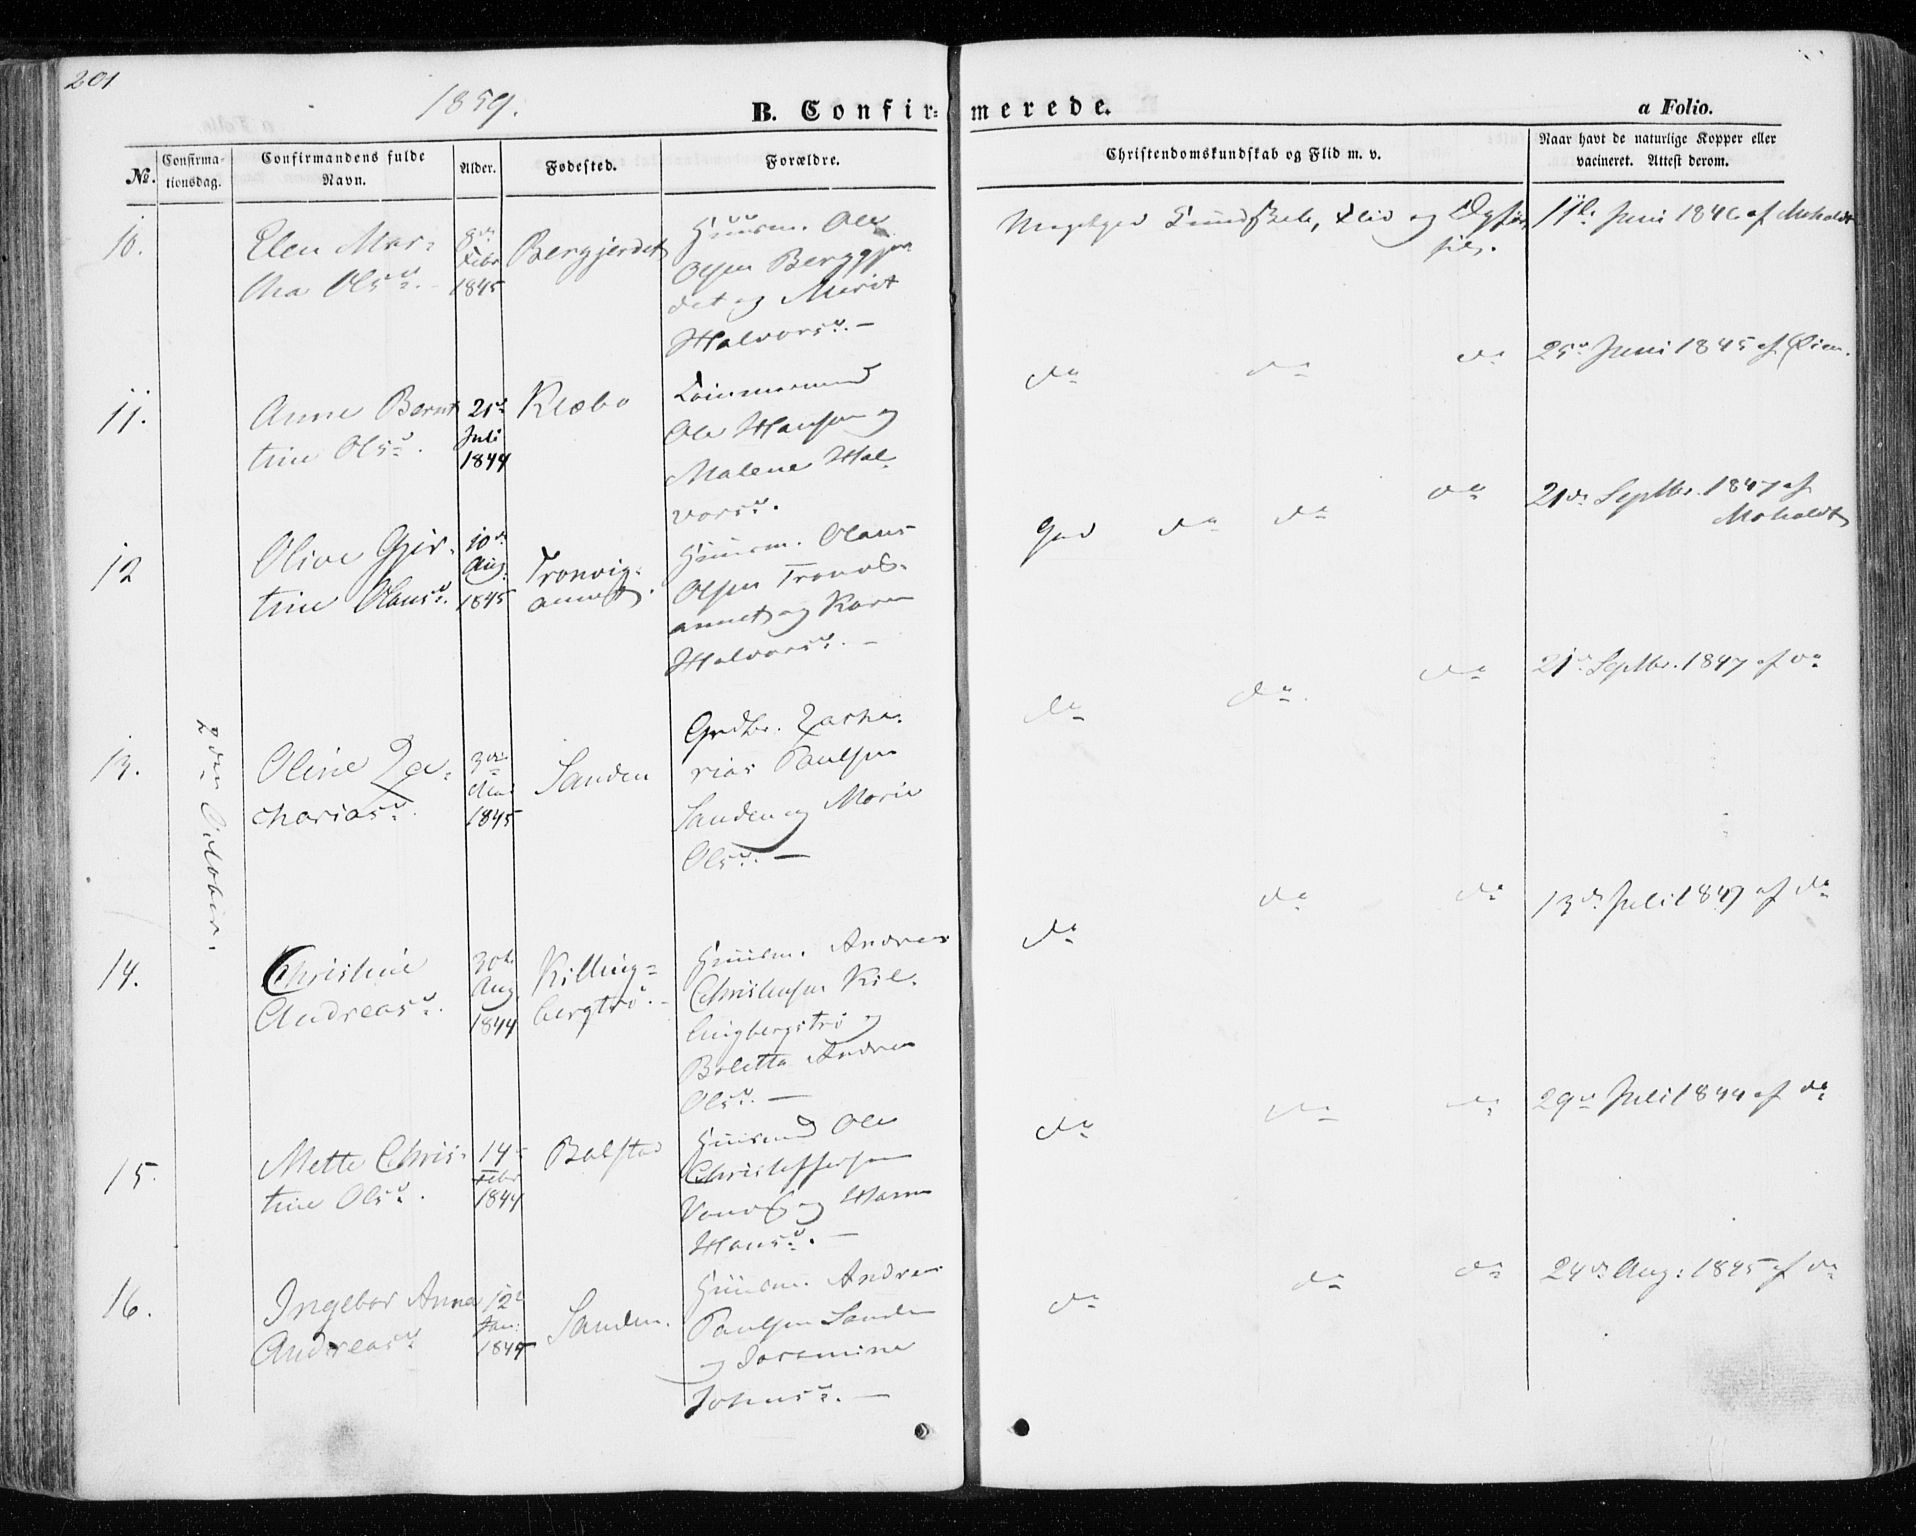 201
1859.
B. Confir=
merede.
a Folio.
No.
Confirma-
tionsdag.
Confirmandens fulde
Navn.
Alder.
Fødested.
Forældre.
Christendomskundskab og Flid m. v.
Naar havt de naturlige Kopper eller
vacineret. Attest derom.
2den October.
10.
Elen Mar-
tha Olsd.
Febr
1845
Bergjerdet
Huusm. Ole
Olsen Berggjer
det og Marit
Halvorsd. —
Kundskab, Flid og
Juni 1846 af Moholdt
11.
Anne Bernt
tine Olsd.
21d
Juli
1844
Klæbo
Ole Hansen og
Malene Hal
vorsd.
do do do
25d Juni 1845 af Øien.
12
Olive Gjer-
tine Olausd.
10d
Aug.
1845
Tronvig-
annet.
Huusm. Olaus
Olsen
annet og Karen
Halvorsd. —
God do do do
21de Septbr. 1847 af
Moholdt
13.
Oline Za-
chariasd.
3de
1845
Sanden
Grdbr. Zacha-
rias Paulsen
Sanden og Marie
Olsd. —
do do do
21d Septbr. 1847 af do
14.
Christine
Andreasd.
30t
Aug.
1844
Killing=
bergtrø.
Huusm. Andreas
Christensen Kil-
lingbergstrø og
Boletta Andrea
Olsd. —
do do do
13de Juli 1847 af do
15.
Mette Chris-
tine Olsd.
14
Febr
1844
Balstad
Huusmd Ole
Christophersen
og Hanna
Hansd. —
do do do
29d Juli 1844 af do
16.
Ingebor Anna
Andreasd.
12t
Jan:
1845
Sanden.
Huusm. Andreas
Paulsen Sanden
og
Johnsd. —
do do do
24de Aug: 1845 af do